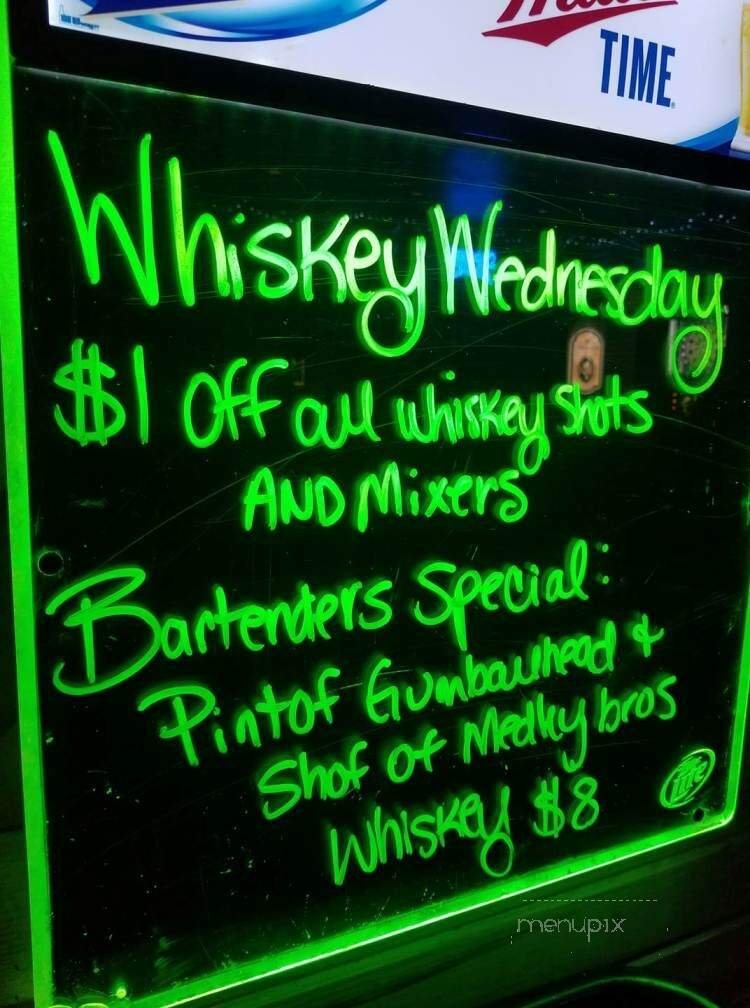 TIME
Whiskey Wednesday
$1 Off all whiskey shots
AND Mixers
Bartenders Special:
Pint of Gumbawhead &
Shot of Medley bros
Whiskey $8
Lite
menupix